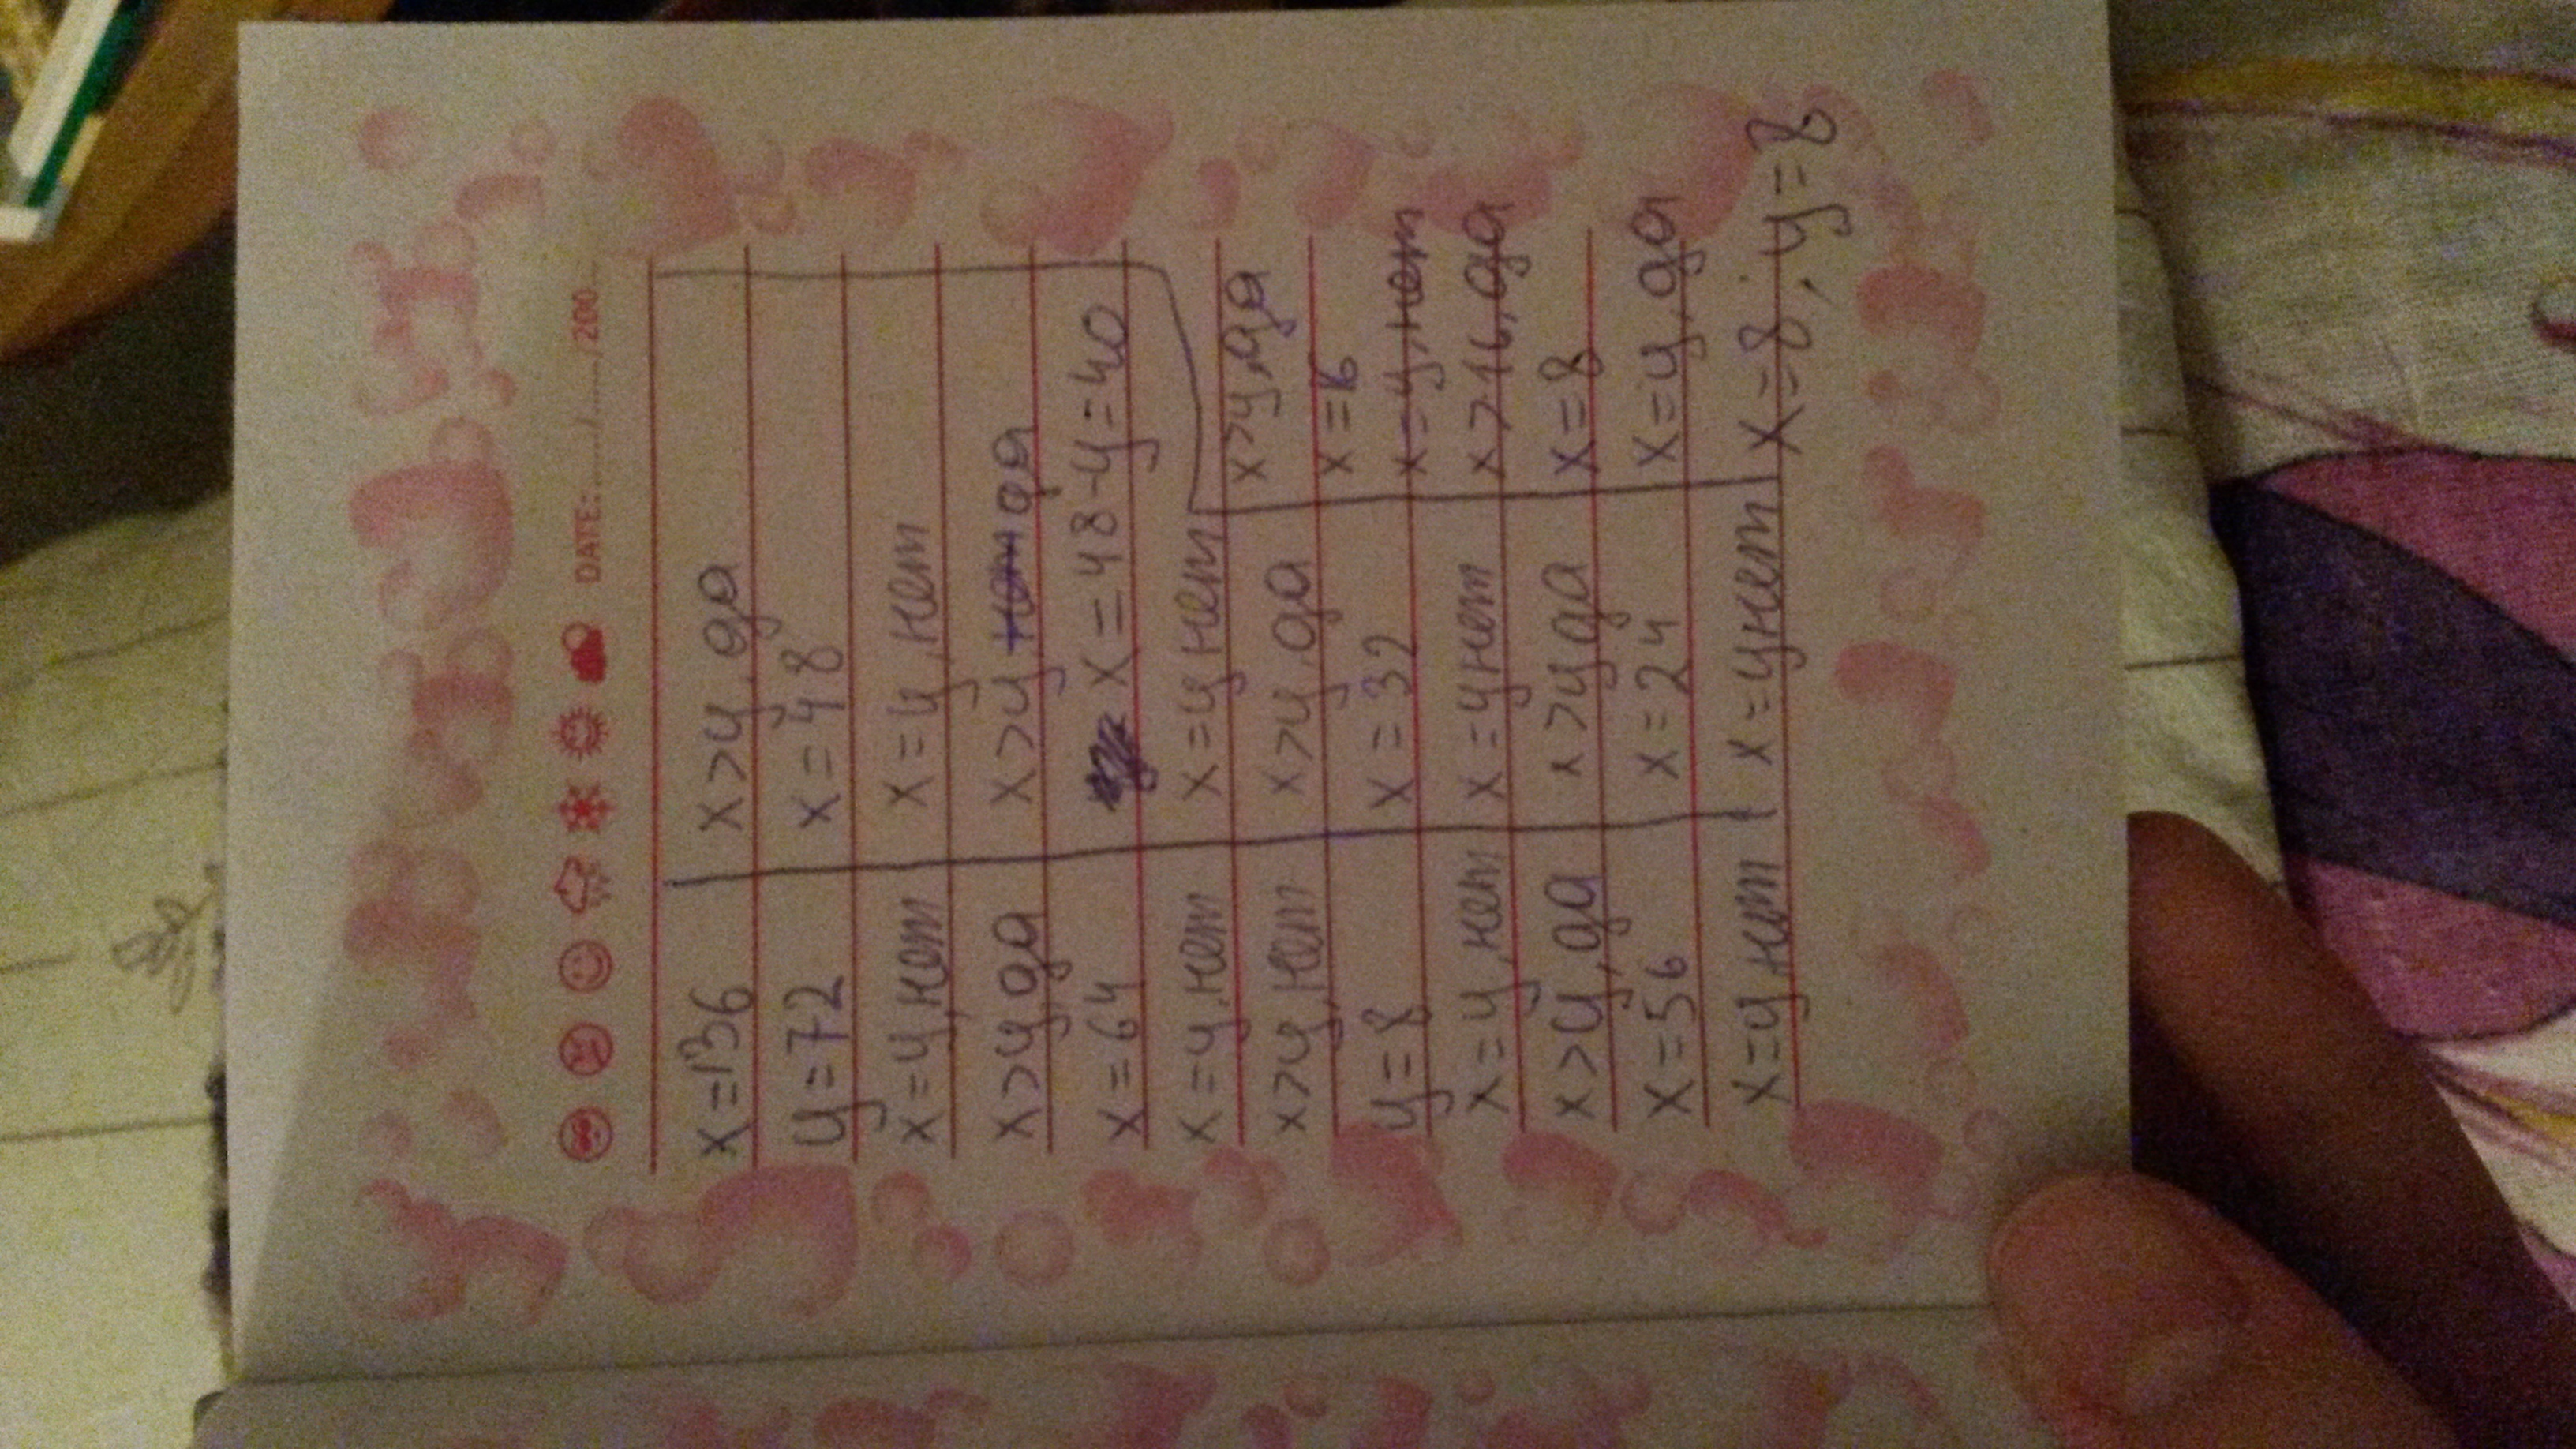 DATE: ......./......./200...
x=136
y=72
x=y,нет
x>y,да
x=64
x=y,нет
x>y,нет
y=8
x=y,нет
x>y,да
x=56
x=y,нет
x>y,да
x=48
x=y,нет
x>y нет да
x=48-y=40
x=y нет
x>y,да
x=32
x=y нет
x>y да
x=24
x=y нет
x>y,да
x=16
x=y,нет
x>16,да
x=8
x=y,да
x=8; y=8